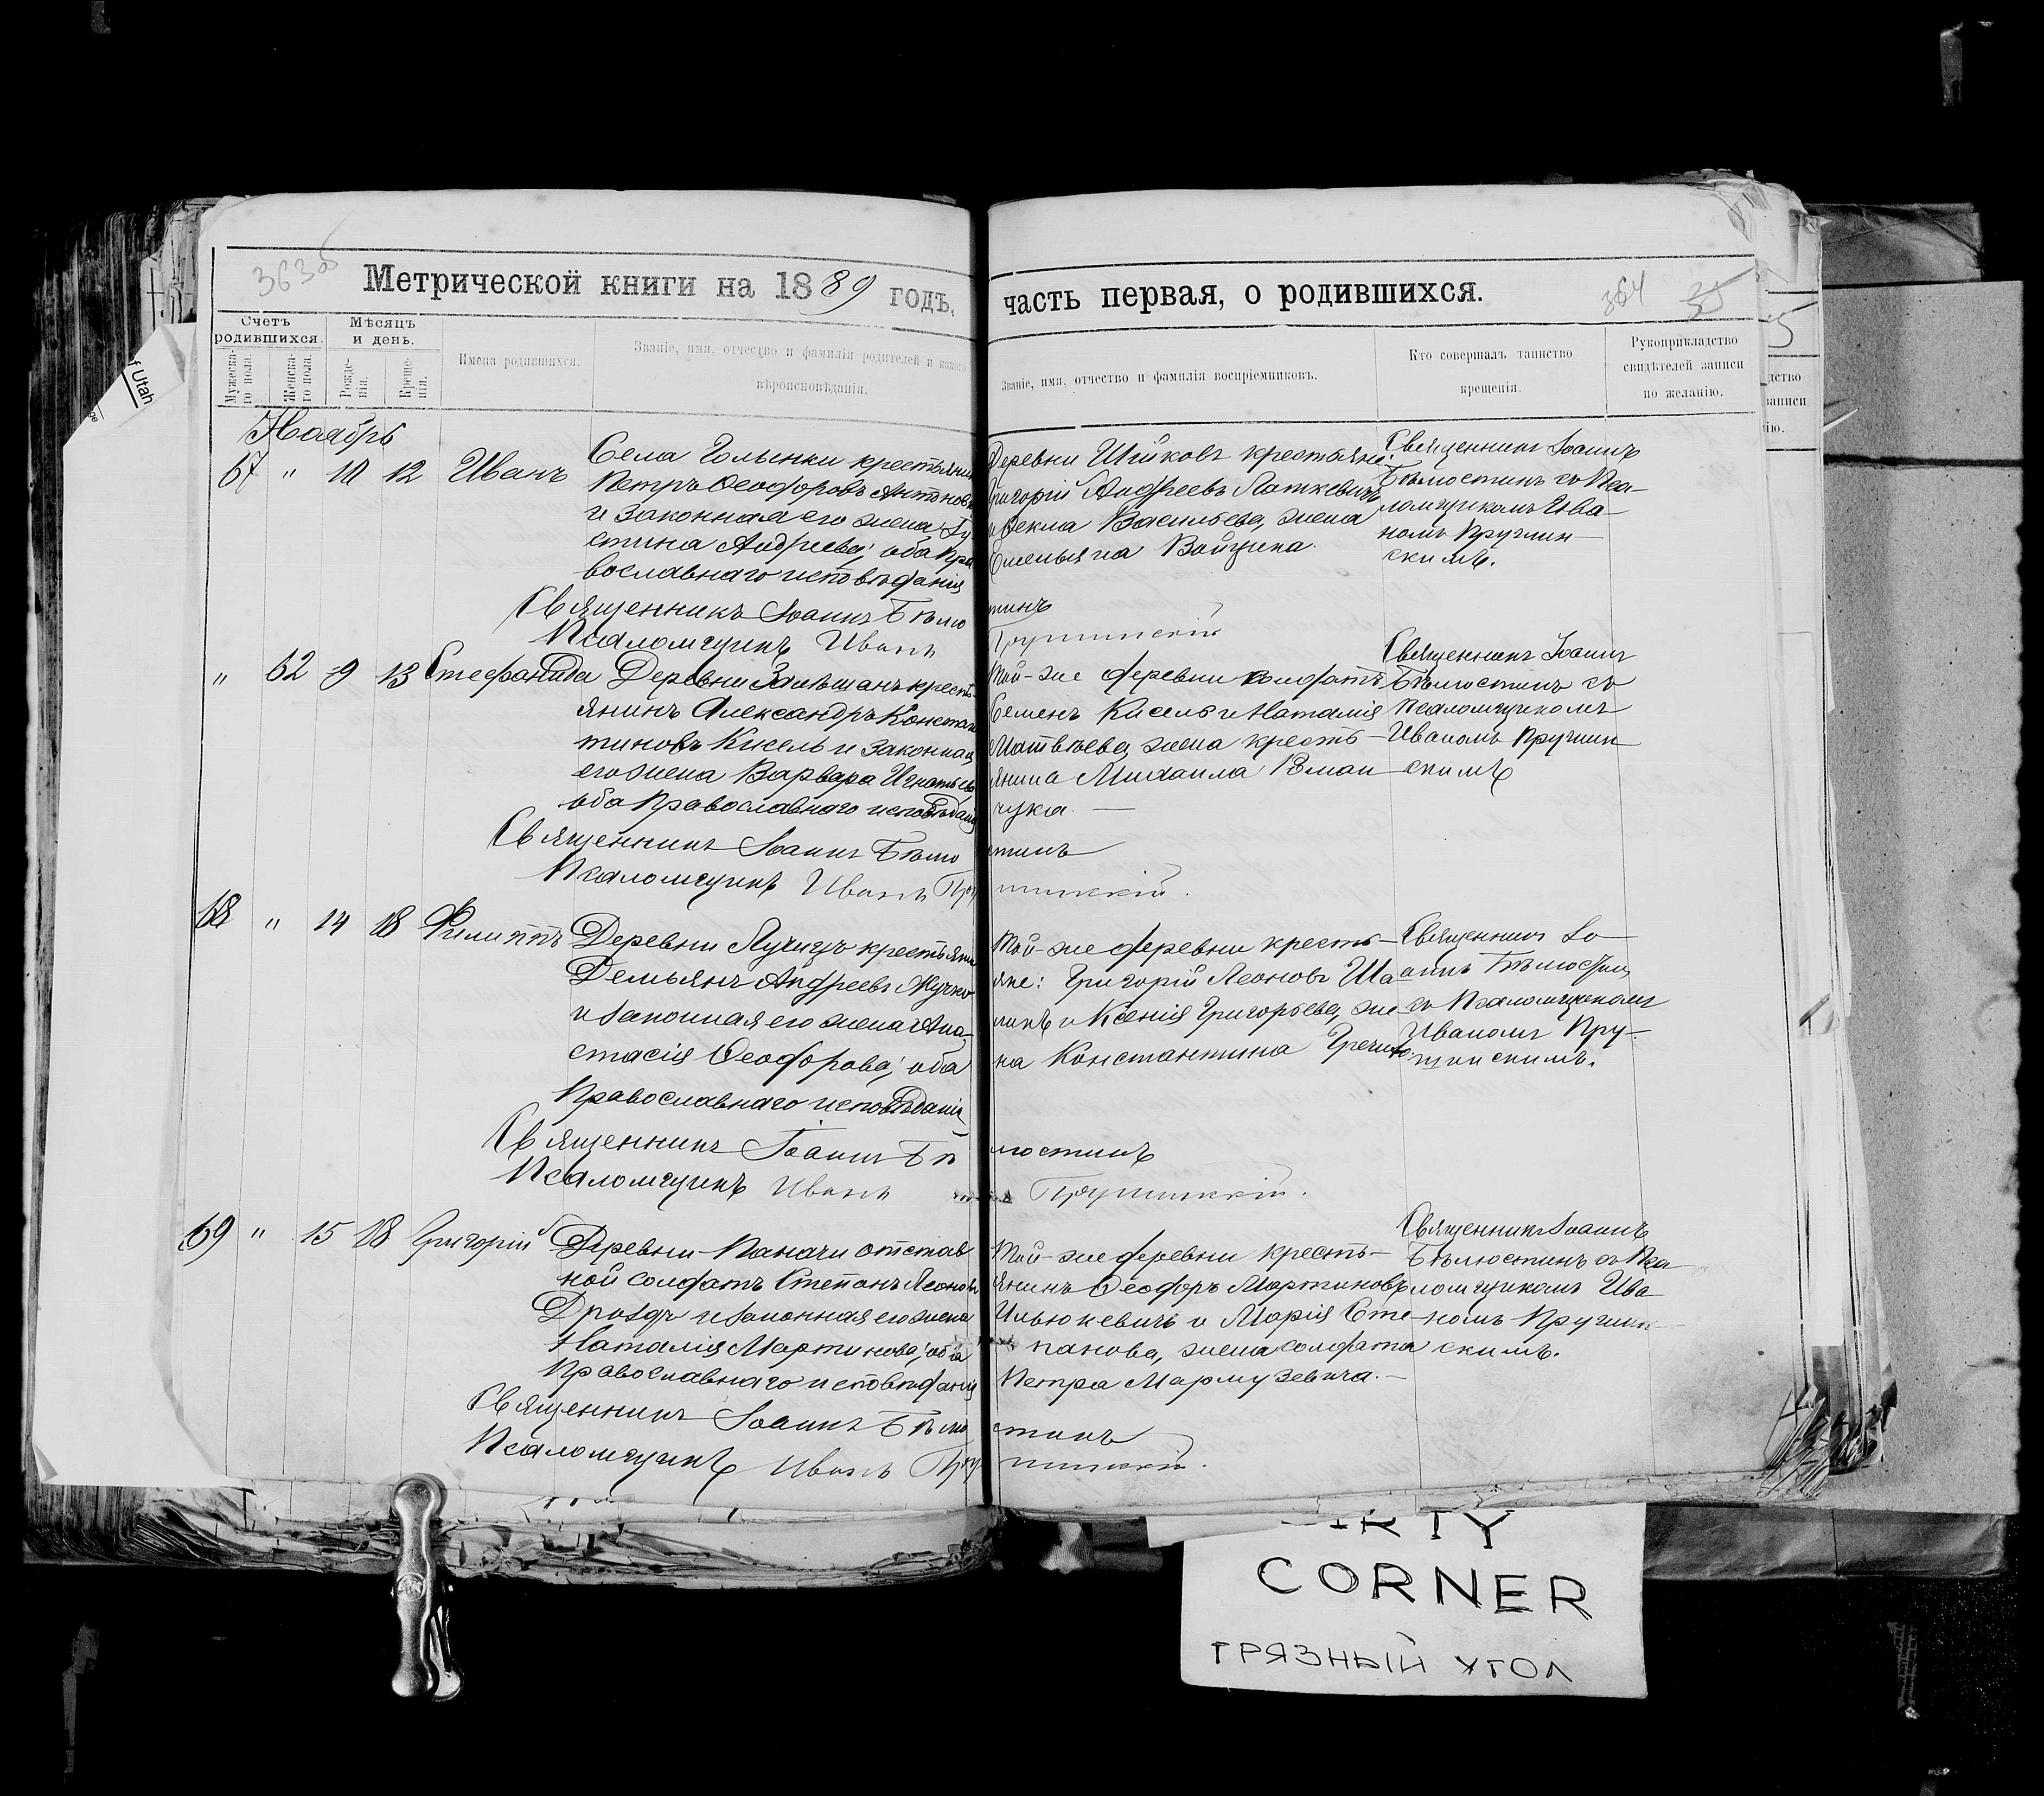 363об
Метрической книги на 1889 годъ,
часть первая, о родившихся.
364
35
Счетъ родившихся.
Мѣсяцъ и день.
Мужеска-го пола.
Женска-го пола.
Рожде-нія.
Креще-нія.
Имена родившихся.
Званіе, имя, отчество и фамилія родителей и какого
вѣроисповѣданія.
Званіе, имя, отчество и фамилія воспріемниковъ.
Кто совершалъ таинство
крещенія.
Рукоприкладство
свидѣтелей записи
по желанію.
Ноябрь
67 " 10 12 Иванъ
Села Голынки крестьянинъ
Петръ Ѳеодоровъ Антонов
и законная его жена Іу
стина Андреева; оба пра
вославнаго исповѣданія
Деревни крестьяне:
Григорій Андреевъ Латкевичъ
и Ѳекла Васильева, жена
Емельяна Войцика.
Священникъ Іоаннъ
Бѣлюстинъ съ Пса-
ломщикомъ Ива-
номъ Пружин-
скимъ.
Священникъ Іоаннъ Бѣлю
стинъ
Псаломщикъ Иванъ
Пружинскій
" 62 9 13 Стефанида
Деревни крест-
янинъ Александръ Констан
тиновъ Кисель и законная
его жена Варвара Игнатьева
оба Православнаго исповѣданія
Той-же деревни солдатъ
Семенъ Кисель и Наталія
Матвѣева, жена кресть-
янина Михаила Роман
чука. —
Священникъ Іоаннъ
Бѣлюстинъ съ
Псаломщикомъ
Иваномъ Пружин
скимъ
Священникъ Іоаннъ Бѣлю
стинъ
Псаломщикъ Иванъ Пру
жинскій.
68 " 14 18 Филиппъ
Деревни Лучицъ крестьянин
Демьянъ Андреевъ Жучко
и законная его жена Ана-
стасія Ѳеодорова; оба
Православнаго исповѣданія
Той-же деревни кресть-
яне: Григорій Леоновъ Ша-
и Ксенія Григорьева, же
на Константина
Священникъ Іо-
аннъ Бѣлюстинъ
съ Псаломщикомъ
Иваномъ Пру-
жинскимъ.
Священникъ Іоаннъ Бѣ
люстинъ
Псаломщикъ Иванъ
Пружинскій.
69 " 15 18 Григорій
Деревни Паначи отстав
ной солдатъ Степанъ Леоновъ
Дроздъ и законная его жена
Наталія Мартинова; оба
Православнаго исповѣданія
Той-же деревни кресть-
янинъ Ѳеодоръ Мартиновъ
Илюкевичъ и Марія Сте
панова, жена солдата
Петра Мармузевича. —
Священникъ Іоаннъ
Бѣлюстинъ съ Пса
ломщикомъ Ива
номъ Пружин
скимъ.
Священникъ Іоаннъ Бѣлю
стинъ
Псаломщикъ Иванъ Пру
жинскій.
f Utah
CORNER
ГРЯЗНЫЙ УГОЛ